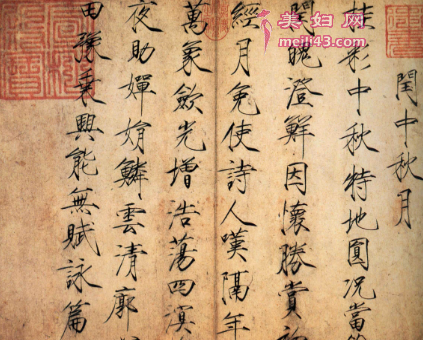 美妇网
meili43.com
閏中秋月
桂彩中秋特地圓況當
閏魄澄鮮因懷勝賞初
經月免使詩人嘆隔年
萬象斂光增浩蕩四溟
夜助嬋娟鱗雲清廓
田豫乘興能無賦詠篇